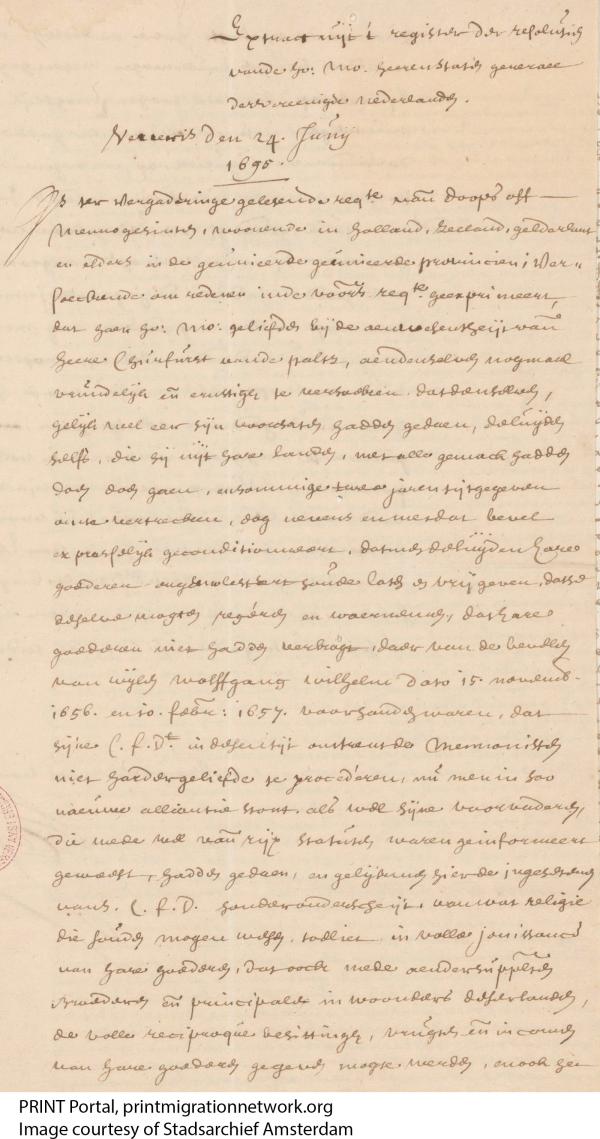 Extract uijt 't register der resolutien
vande Ho: Mo: Heeren Staten generael
der vereenigde nederlanden.
Veneris den 24. Junij
1695.
Is ter vergaderinge gelesen de reqte. van doops off
Mennogesinden, woonende in Holland, Zeeland, gelderlant
en elders in de geunieerde geunieerde provincien, Ver-
soeckende om redenen inde voors. reqte. geexprimeert,
dat haer Ho: Mo: geliefden bij de aenwesentheijt van
Heere Churfurst vande paltz, aendenselven nogmael
vrundelijk en ernstigh te versoecken, dat denselven,
gelijk wel eer sijn voorsaten hadden gedaen, de luijden
selfs, die hij uijt hare landen, met alle gemack hadden
doen gaen, en sommige twee jaren tijt gegeven
om te vertrecken, dog nevens en met dat bevel
expresselijk geconditionneert, dat men de luijden hare
goederen ongemolesteert soude laten en vrij geven, dat se
deselve mogten regeren en waernemen, dat hare
goederen niet hadden verbragt, daer van de bevelen
van wijlen Wolffgang Wilhelm dato 15. novemb.
1656. en 10. febr: 1657. voorhanden waren, dat
sijne C. f. Dt. in desen tijt omtrent de Mennonisten
niet harder geliefde te procederen, nu men in soo
nauwe alliantie stont, als wel sijne voorvaderen,
die mede wel van rijx statuten waren geinformeert
geweest, hadden gedaen, en gelijk nu hier de ingesetenen
van S. C. f. D. sonder onderscheijt, van wat religie
die souden mogen wesen, sodiet in volle jouissance
van hare goederen, dat oock mede aen der supplten
Broederen en principale in woonders deser landen,
de volle reciproque besittingh, vrugten en incomen
van hare goederen gegeven mogte werden, en ook